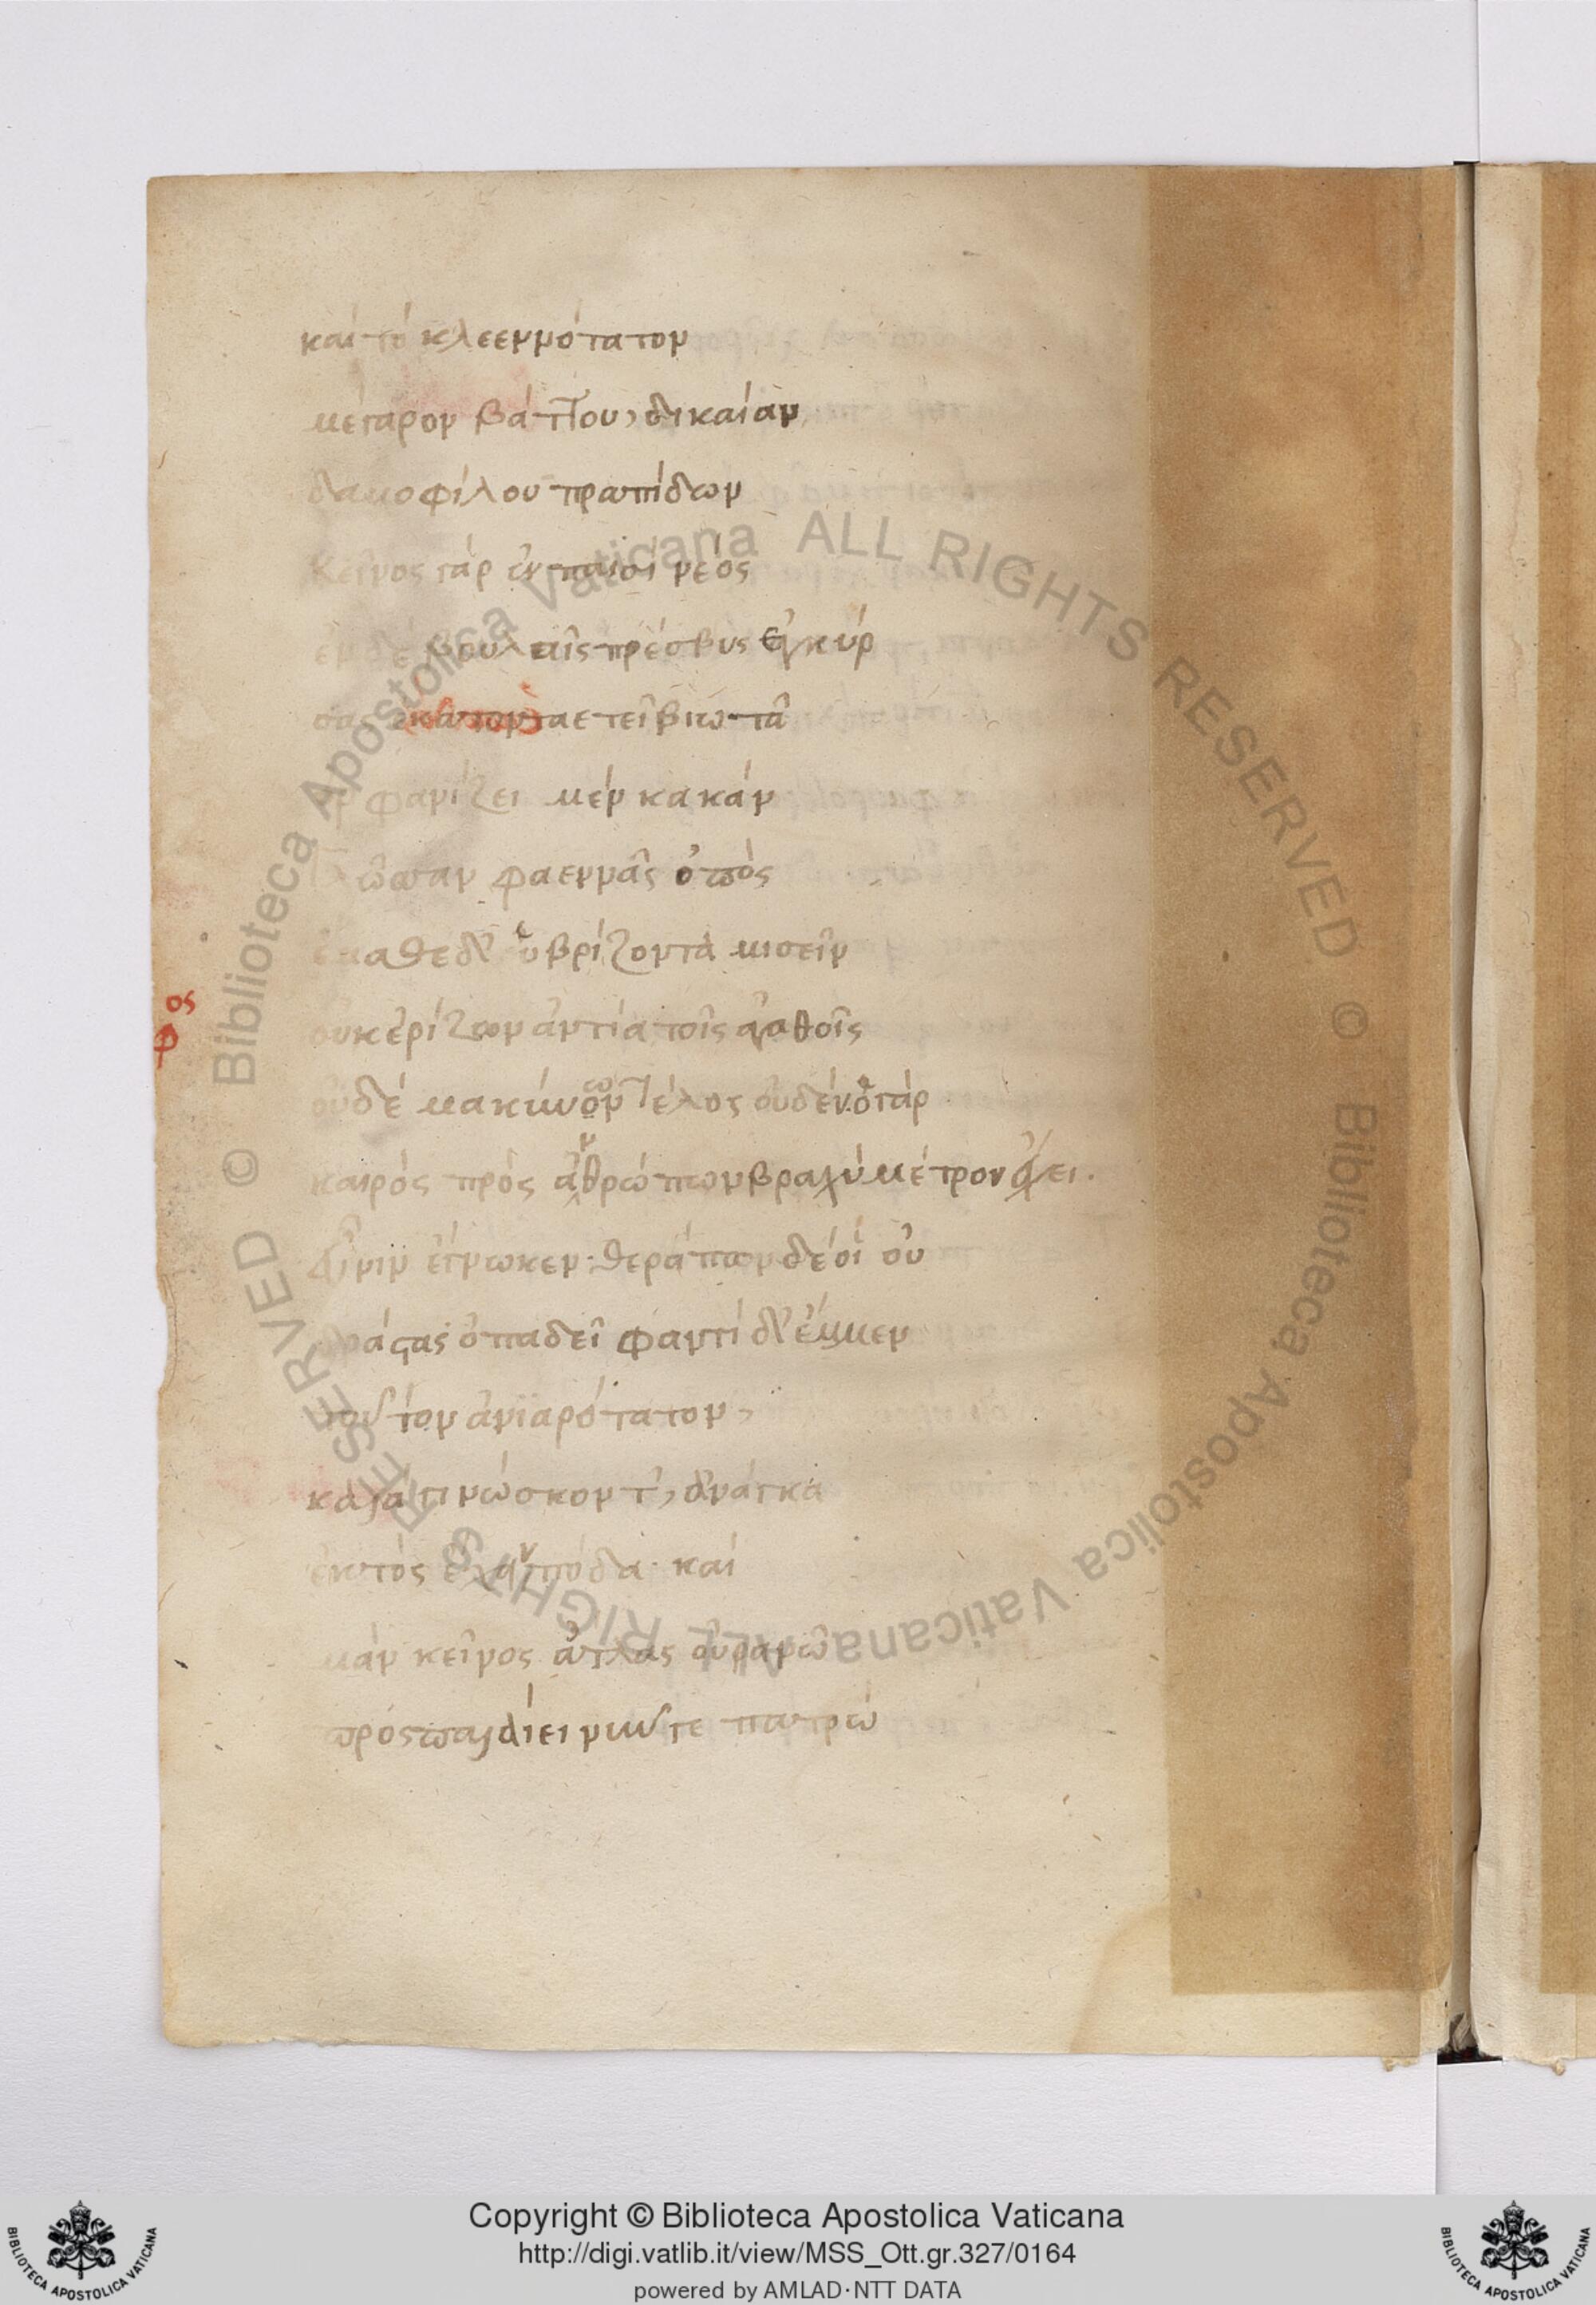 καὶ τὸ κλεεννότατον
μέγαρον βάττου, δικαίαν
δαμοφίλου πραπίδων
κεῖνος γὰρ ἐν παισὶ νέος
ἐν δὲ βουλαῖς πρέσβυς ἐγκύρ
σας ἑκατονταετεῖ βιωτᾶ
ὀρφανίζει μὲν κακὰν
γλῶσσαν φαεννᾶς ὀπὸς
ἔμαθε δ' ὑβρίζοντα μισεῖν
ος
φ
οὐκ ἐρίζων ἀντία τοῖς ἀγαθοῖς
οὐδὲ μακύνων τέλος οὐδέν. ὁ γὰρ
καιρὸς πρὸς ἀνθρώπων βραχὺ μέτρον ἔχει.
εὖ νιν ἔγνωκεν· θεράπων δέ οἱ οὐ
δράστας ὀπαδεῖ φαντὶ δ' ἔμμεν
τοῦτον ἀνϊαρότατον,
καλὰ γινώσκοντ', ἀνάγκα
ἐκτὸς ἔχην πόδα· καὶ
μὰν κεῖνος ἄτλας οὐρανῶ
προσπαλαίει νῦν γε πατρώ
Copyright © Biblioteca Apostolica Vaticana
http://digi.vatlib.it/view/MSS_Ott.gr.327/0164
powered by AMLAD·NTT DATA
BIBLIOTECA APOSTOLICA VATICANA
BIBLIOTECA APOSTOLICA VATICANA
© Biblioteca Apostolica Vaticana ALL RIGHTS RESERVED © Biblioteca Apostolica Vaticana ALL RIGHTS RESERVED